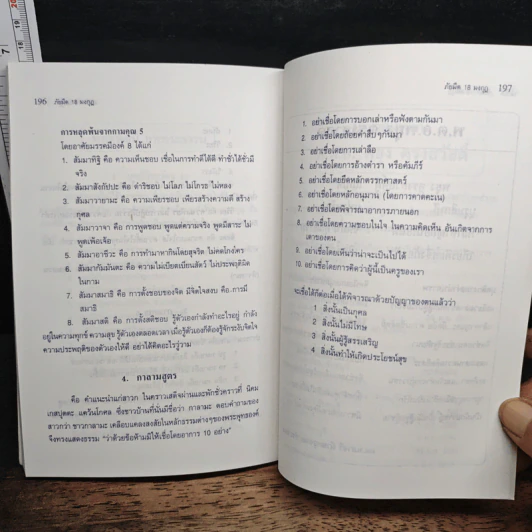 196 ภัยมืด 18 มงกุฎ
การหลุดพ้นจากกามคุณ 5
โดยอาศัยมรรคมีองค์ 8 ได้แก่
1. สัมมาทิฐิ คือ ความเห็นชอบ เชื่อในการทำดีได้ดี ทำชั่วได้ชั่วมี
จริง
2. สัมมาสังกัปปะ คือ ดำริชอบ ไม่โลภ ไม่โกรธ ไม่หลง
3. สัมมาวายามะ คือ ความเพียรชอบ เพียรสร้างความดี สร้าง
กุศล
4. สัมมาวาจา คือ การพูดชอบ พูดแต่ความจริง พูดมีสาระ ไม่
พูดเพ้อเจ้อ
5. สัมมาอาชีวะ คือ การทำมาหากินโดยสุจริต ไม่คดโกงใคร
6. สัมมากัมมันตะ คือ ความไม่เบียดเบียนสัตว์ ไม่ประพฤติผิด
ในกาม
7. สัมมาสมาธิ คือ การตั้งชอบของจิต มีจิตใจสงบ คือ การมี
สมาธิ
8. สัมมาสติ คือ การตั้งสติชอบ รู้ตัวเองกำลังทำอะไรอยู่ กำลัง
อยู่ในความทุกข์ ความสุข รู้ตัวเองตลอดเวลา เมื่อรู้ตัวเองก็ต้องรู้จักระงับจิตใจ
ความประพฤติของตัวเองให้ดี อย่าได้คิดอะไรวู่วาม
4. กาลามสูตร
คือ คำแนะนำแก่สาวก ในคราวเสด็จผ่านและพักชั่วคราวที่ นิคม
เกสปุตตะ แคว้นโกศล ซึ่งชาวบ้านที่นั่นมีชื่อว่า กาลามะ ตอบคำถามของ
สาวกว่า ชาวกาลามะ เคลือบแคลงสงสัยในหลักธรรมต่างๆของพระพุทธองค์
จึงทรงแสดงธรรม "ว่าด้วยข้อห้ามมิให้เชื่อโดยอาการ 10 อย่าง"
ภัยมืด 18 มงกุฎ 197
1. อย่าเชื่อโดยการบอกเล่าหรือฟังตามกันมา
2. อย่าเชื่อโดยถ้อยคำสืบๆกันมา
3. อย่าเชื่อโดยการเล่าลือ
4. อย่าเชื่อโดยการอ้างตำรา หรือคัมภีร์
5. อย่าเชื่อโดยยึดหลักตรรกศาสตร์
6. อย่าเชื่อโดยหลักอนุมาน (โดยการคาดคะเน)
7. อย่าเชื่อโดยพิจารณาอาการภายนอก
8. อย่าเชื่อโดยความชอบในใจ ในความคิดเห็น อันเกิดจากการ
เดาของตน
9. อย่าเชื่อโดยเห็นว่าน่าจะเป็นไปได้
10. อย่าเชื่อโดยการคิดว่าผู้นี้เป็นครูของเรา
จะเชื่อได้ก็ต่อเมื่อได้พิจารณาด้วยปัญญาของตนแล้วว่า
1 สิ่งนั้นเป็นกุศล
2 สิ่งนั้นไม่มีโทษ
3 สิ่งนั้นผู้รู้สรรเสริญ
4 สิ่งนั้นทำให้เกิดประโยชน์สุข